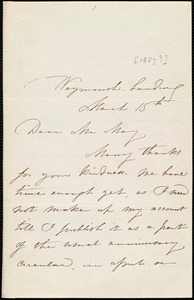 [1859?]
Weymouth Landing
March 15th
Dear Mr May
Many thanks
for your kindness. We have
time enough yet as I need
not make up my account
till I publish it as a part
of the usual anniversary
circular, in April or